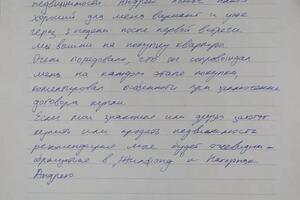 недвижимости Андрей нашёл такой
хороший для меня вариант и уже
через 2 недели после первой встречи
мы вышли на покупку квартиры.
Очень порадовало, что он сопровождал
меня на каждом этапе покупки,
комментировал особенности при заключение
договора купли.
Если мои знакомые или друзья захотят
купить или продать недвижимость
рекомендация моя будет очевидна -
обращайтесь в Жилфонд и
Андрею